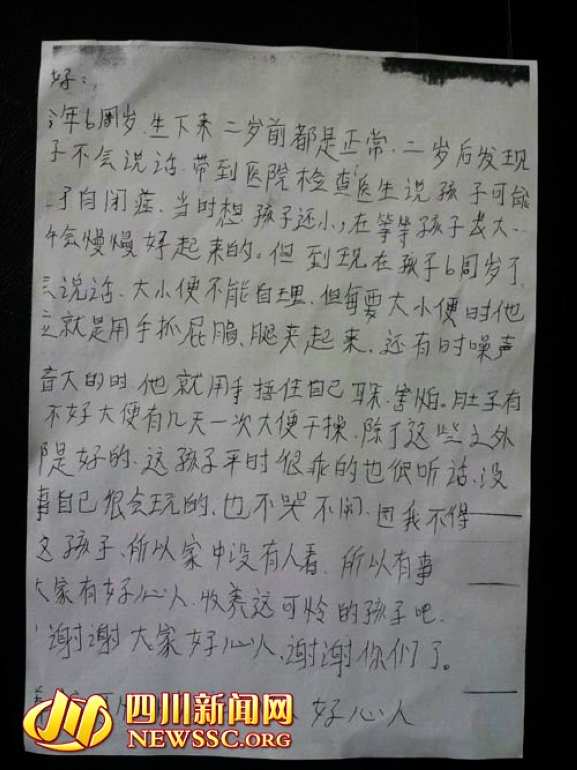 好：
年6周岁.生下来二岁前都是正常.二岁后发现
子不会说话.带到医院检查医生说孩子可能
了自闭症.当时想孩子还小,在等等孩子长大
会慢慢好起来的。但到现在孩子6周岁了
说话.大小便不能自理.但每要大小便时他
就是用手抓屁股、腿夹起来.还有时噪声
音大的时.他就用手捂住自己耳朵.害怕。肚子有
不好大便有几天一次大便干操.除了这些之外
是好的.这孩子平时很乖的也很听话.没
事自己很会玩的.也不哭不闹.因我不得
这孩子、所以家中没有人看.所以有事
大家有好心人.收养这可怜的孩子吧.
谢谢大家好心人、谢谢你们了。
好心人
四川新闻网
NEWSSC.ORG